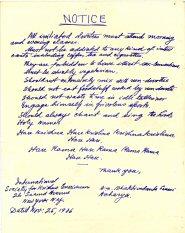 NOTICE
All initiated devotees must attend morning
and evening classes.
Must not be addicted to any kinds of intox-
icants, including coffee, tea and cigarettes.
They are forbidden to have illicit sex-connections.
Must be strictly vegetarian.
Should not extensively mix with non-devotees.
Should not eat foodstuffs cooked by non-devotees.
Should not waste time in idle talks nor
engage himself in frivolous sports.
Should always chant and sing the Lord's
Holy Names
Hare Krishna Hare Krishna Krishna Krishna
Hare Hare
Hare Rama Hare Rama Rama Rama
Hare Hare.
Thank you,
International
Society for Krishna Consciousness
26 Second Avenue
New York N.Y.
Acharya.
Dated Nov. 25, 1966